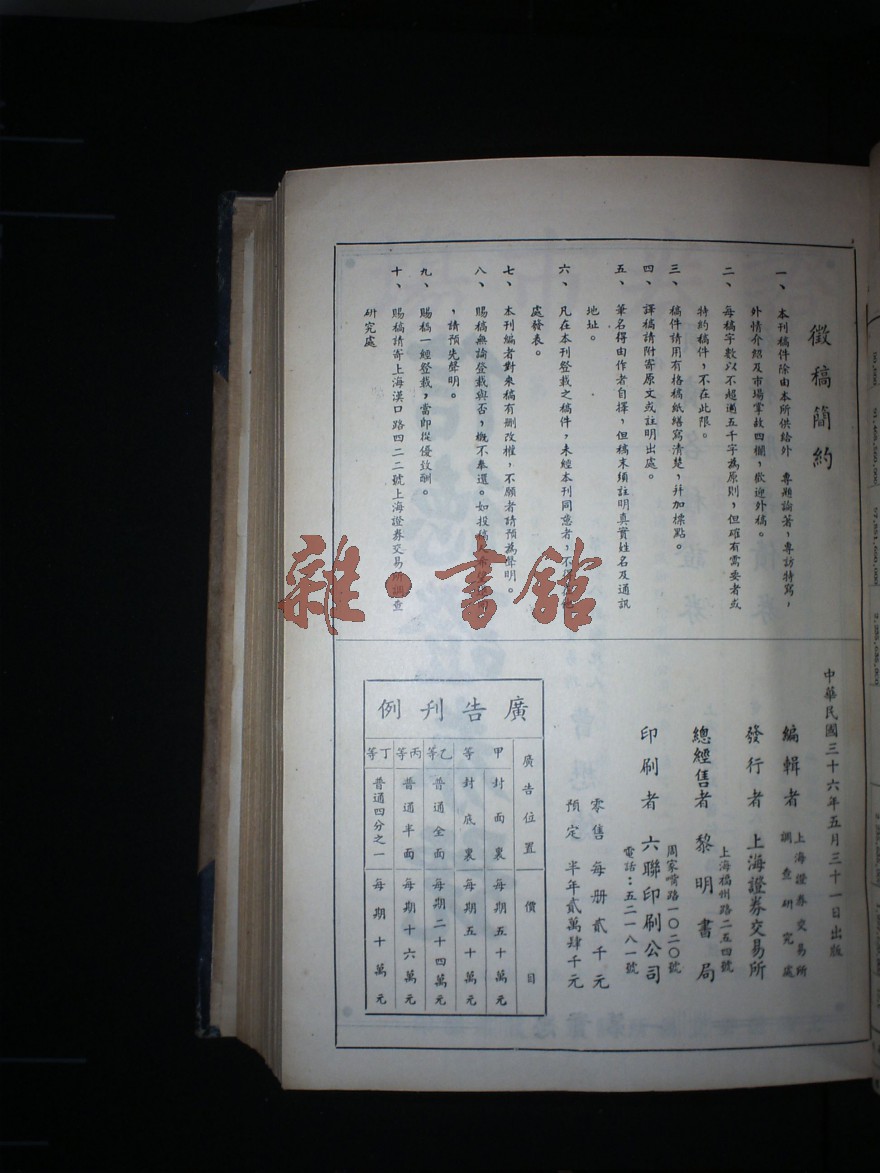 徵稿簡約
一、本刊稿件除由本所供給外 專題論著，專訪特寫，
外情介紹及市場掌故四欄，歡迎外稿。
二、每稿字數以不超過五千字為原則，但確有需要者或
特約稿件，不在此限。
三、稿件請用有格稿紙繕寫清楚，并加標點。
四、譯稿請附寄原文或註明出處。
五、筆名得由作者自擇，但稿末須註明真實姓名及通訊
地址。
六、凡在本刊登載之稿件，未經本刊同意者，不得
處發表。
七、本刊編者對來稿有刪改權，不願者請預為聲明。
八、賜稿無論登載與否，概不奉還。如投稿人
，請預先聲明。
九、賜稿一經登載，當即從優致酬。
十、賜稿請寄上海漢口路四二二號上海證券交易所調查
研究處
中華民國三十六年五月三十一日出版
編輯者 上海證券交易所
調查研究處
發行者 上海證券交易所
上海福州路二五四號
總經售者 黎明書局
周家嘴路一〇二〇號
印刷者 六聯印刷公司
電話：五二一八一號
零售 每册貳千元
預定 半年貳萬肆千元
廣告刊例
廣告位置 價目
甲 封面裏 每期五十萬元
等 封底裏 每期五十萬元
乙等 普通全面 每期二十四萬元
丙等 普通半面 每期十六萬元
丁等 普通四分之一 每期十萬元
雜·書館